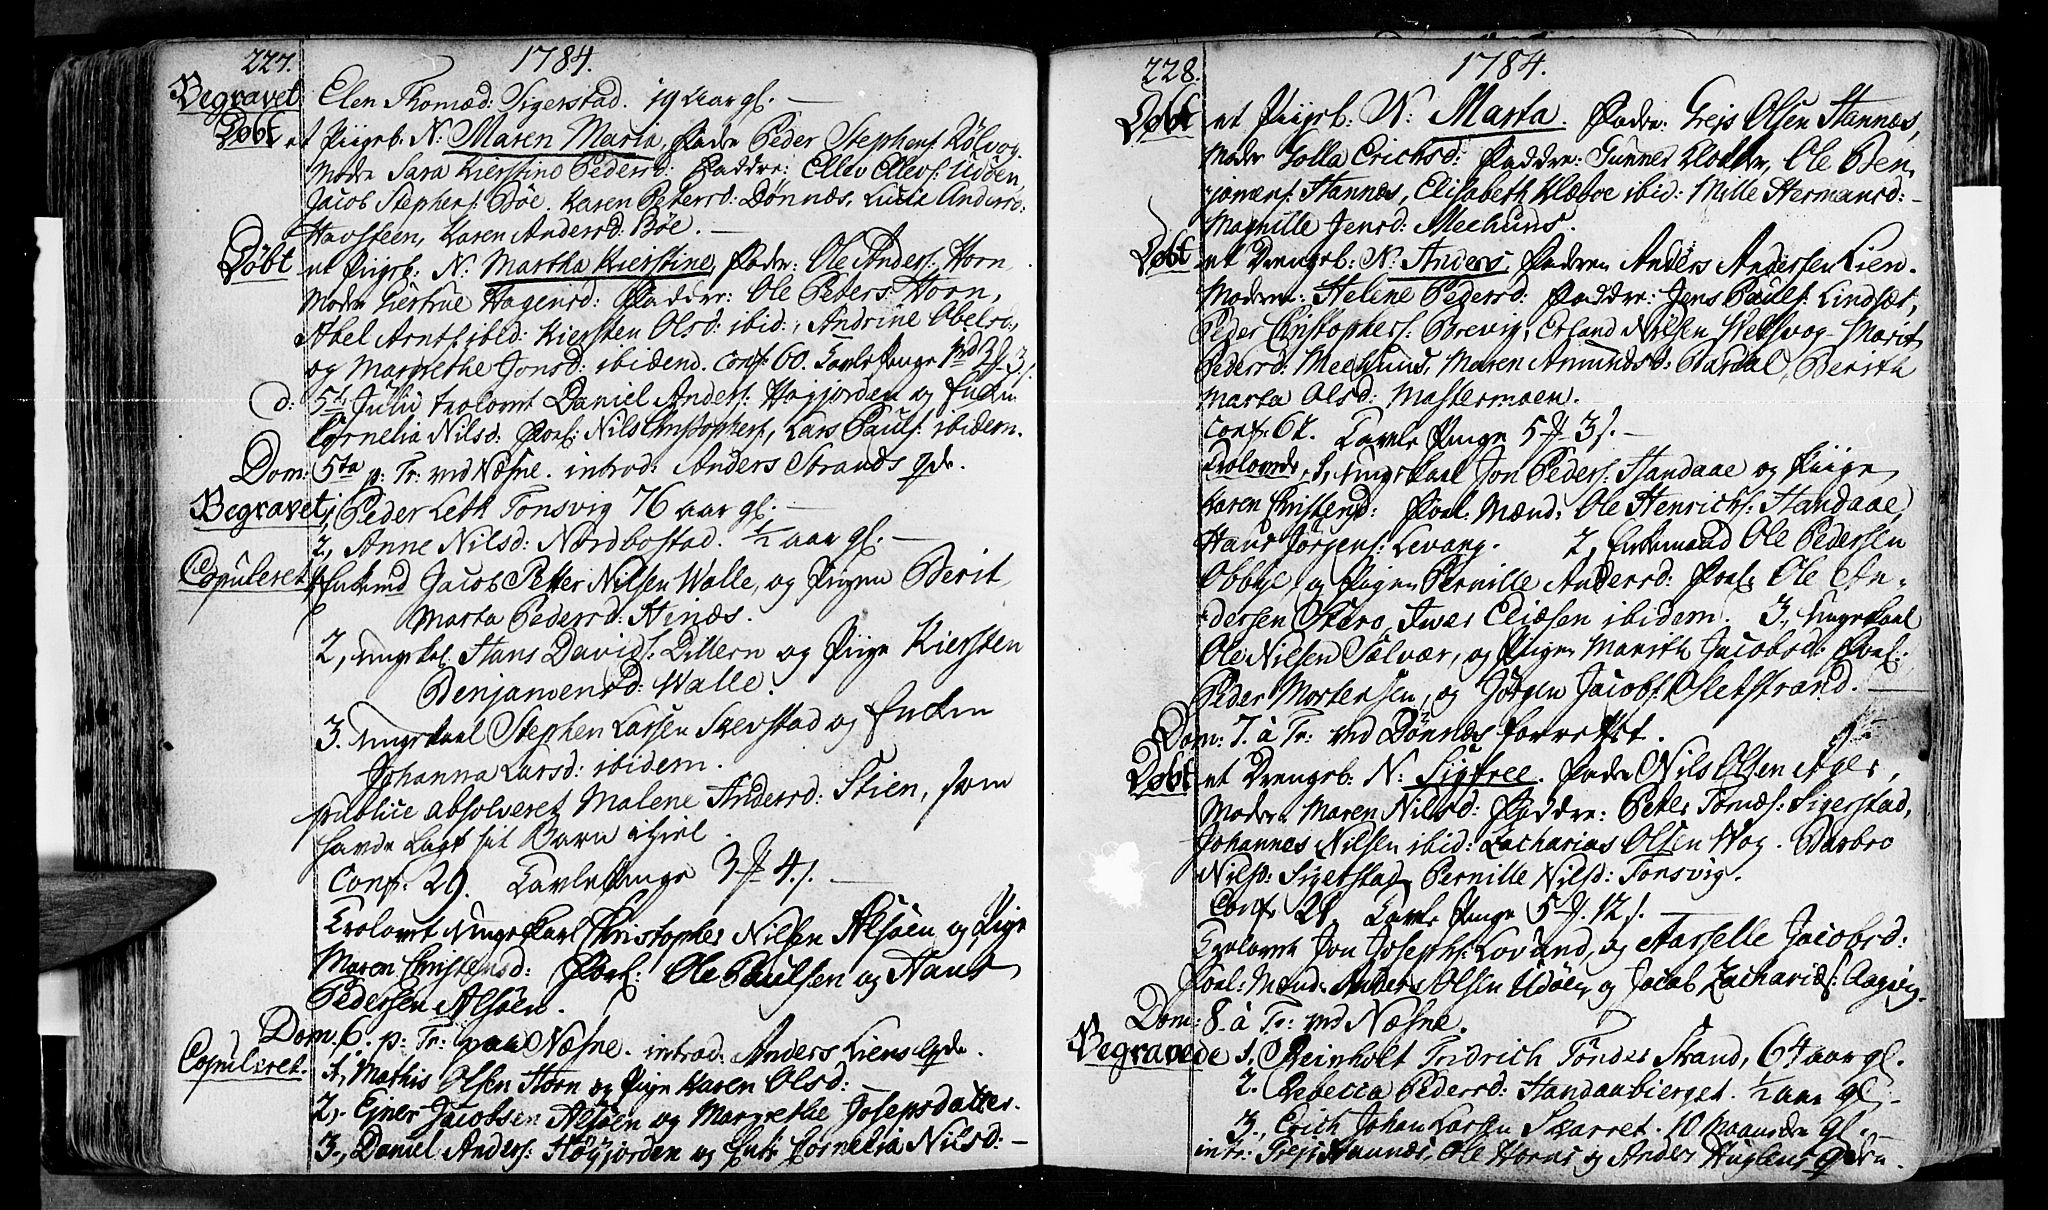 227. 1784.
Begravet Elen Thomæd. Sigerstad. 19 Aar gl. —
Døbt et Piigeb. N: Maren Maria, Fadr Peder Stephens: Kølvog
Modr Sara Kierstine Pedersd: Faddre: Ellev Ellevs: Udøen,
Jacob Stephens: Bøe. Karen Petersd: Dønnæs, Lucie Andersd:
Havsteen, Karen Andersd: Bøe. —
Døbt et Piigeb. N: Martha Kierstine, Fadr: Ole Anders: Horn.
Modr Giertrue Hagensd: Faddre: Ole Peters: Horn,
Abel Arnts: ibid: Kiersten Olsd: ibid:, Andrine Obelsd:,
og Margrethe Jonsd: ibidem. Conf. 60. Tavle Penge
d: 5te Julii trolovet Daniel Anders: Høgjorden og Enken
Cornelia Nilsd: Forl: Nils Christophers:, Lars Pauls: ibidem.
Dom: 5ta p: Tr: ved Næsne. introd: Anders Strands qde.
Begravet 1, Peder Leth Tonsvig 76 aar gl. —
2, Anne Nilsd: Nordbostad. 1/2 aar gl. —
Copuleret 1, Enkemd Jacob Petter Nilsen Walle, og Pigen Berit
Marta Pedersd: Hinæs.
2, Ungkal. Hans Davids: Dillern og Piige Kiersten
Benjamensd: Walle.
3. Ungekaal Stephen Larsen Skevstad og Enken
Johanna Larsd: ibidem.
publice absolveret Malene Andersd: Stien, som
havde Lagt sit Barn ihjel.
Conf. 29. Tavle Penge 3 # 4 s. —
Trolovet Unge Karl Christopher Nilsen Alsøen og Pige
Maren Christensd: Forl: Ole Paulsen og Hans
Pedersen Alsøen.
Dom. 6. p: Tr: paa Næsne. introd: Anders Liens qde.
Copuleret. 1, Mathis Olsen Horn og Pige Karen Olsd: —
2,. Ejner Jacobsen Alsøen og Margrethe Josepsdatter.
3, Daniel Anders: Høgjorden og Enke Cornelia Nilsd: —
228. 1784.
Døbt et Piigeb: N: Marta. Fadr: Greis Olsen Hannæs,
Modr Golla Erichsd: Faddre: Gunner Kloddr, Ole Ben
jamens: Hannæs, Elisabeth Klæboe ibid: Mille Hermansd: —
Magnille Jensd: Meehuus.
Døbt et Drengeb: N: Anders, Fadren Anders Andersen Lien.
Modren: Helene Pedersd: Faddre: Jens Pauls: Lindsæt,
Peder Christophers: Brevig, Erland Nilsen Marit
Pedersd: Meehuus, Maren Amundsd: Bardal, Berith
Marta Olsd: Mastermoen.
Conf. 67. Tavle Penge 5 # 3 s. —
Trolovede, 1, Ungekaal Jon Peders: Handaae og Piige
Karen Christensd: Forl. Mænd: Ole Henrichs: Handaae,
Hans Jørgens: Levang. 2, Enkemand Ole Pedersen
Obbye, og Pigen Pernille Andersd: Forl. Ole An-
dersen Skero, Iwer Eliæsen ibidem. 3, Ungekaal
Ole Nilsen Solvær, og Pigen Marith Jacobsd: Forl:
Peder Mortensen, og Jørgen Jacobs: Sletstrand. —
Dom: 7. à Tr: ved Dønnæs forrettet.
Døbt et Drengeb: N: Sigfree. Fadr Nils Olsen Ager,
Modr Maren Nilsd: Faddre: Peter Tornæs: Sigerstad,
Johannes Nilsen ibid: Zacharias Olsen Wog. Barbro
Nilsd: Sigerstad, Pernille Nilsd: Tonsvig.
Conf. 21. Tavle Penge 5 # 12 s. —
Trolovet Jon Josephs: Lovund, og Aarselle Jacobsd:
Forl: Mænd: Anders Olsen Udøen, og Jacob Zachariæs: Aagvig.
Dom: 8. à Tr: ved Næsne.
Begravede 1. Reinholt Fridrich Tønder Strand, 64 aar gl.
2. Rebecca Pedersd: Handaabierget. 1/2 aar gl. —
3., Erich Johan Larsen Skarret. 10 Maaneder gl. —
intr: Greis Hannæs, Ole Horns og Anders Huglens qdr.